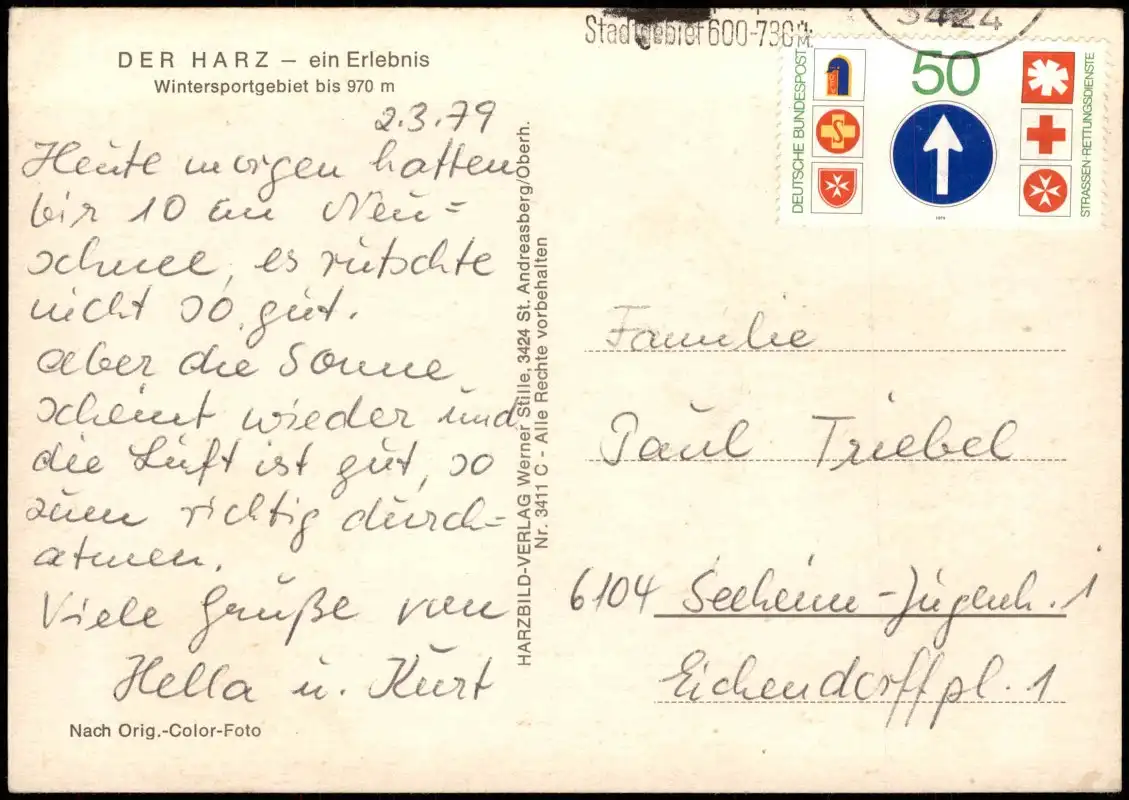 DER HARZ – ein Erlebnis
Wintersportgebiet bis 970 m
2.3.79
Heute morgen hatten
bis 10 cm Neu=
schnee, es rutschte
nicht so gut.
aber die Sonne
scheint wieder und
die Luft ist gut, so
zum richtig durch-
atmen.
Viele Grüße von
Hella u. Kurt
Nach Orig.-Color-Foto
HARZBILD-VERLAG Werner Stille, 3424 St. Andreasberg/Oberh.
Nr. 3411 C - Alle Rechte vorbehalten
Stadtgebiet 600-730 ü.
M.
3424
DEUTSCHE BUNDESPOST
50
STRASSEN-RETTUNGSDIENSTE
S
1979
Familie
Paul Triebel
6104 Seeheim-Jugenh. 1
Eichendorffpl. 1